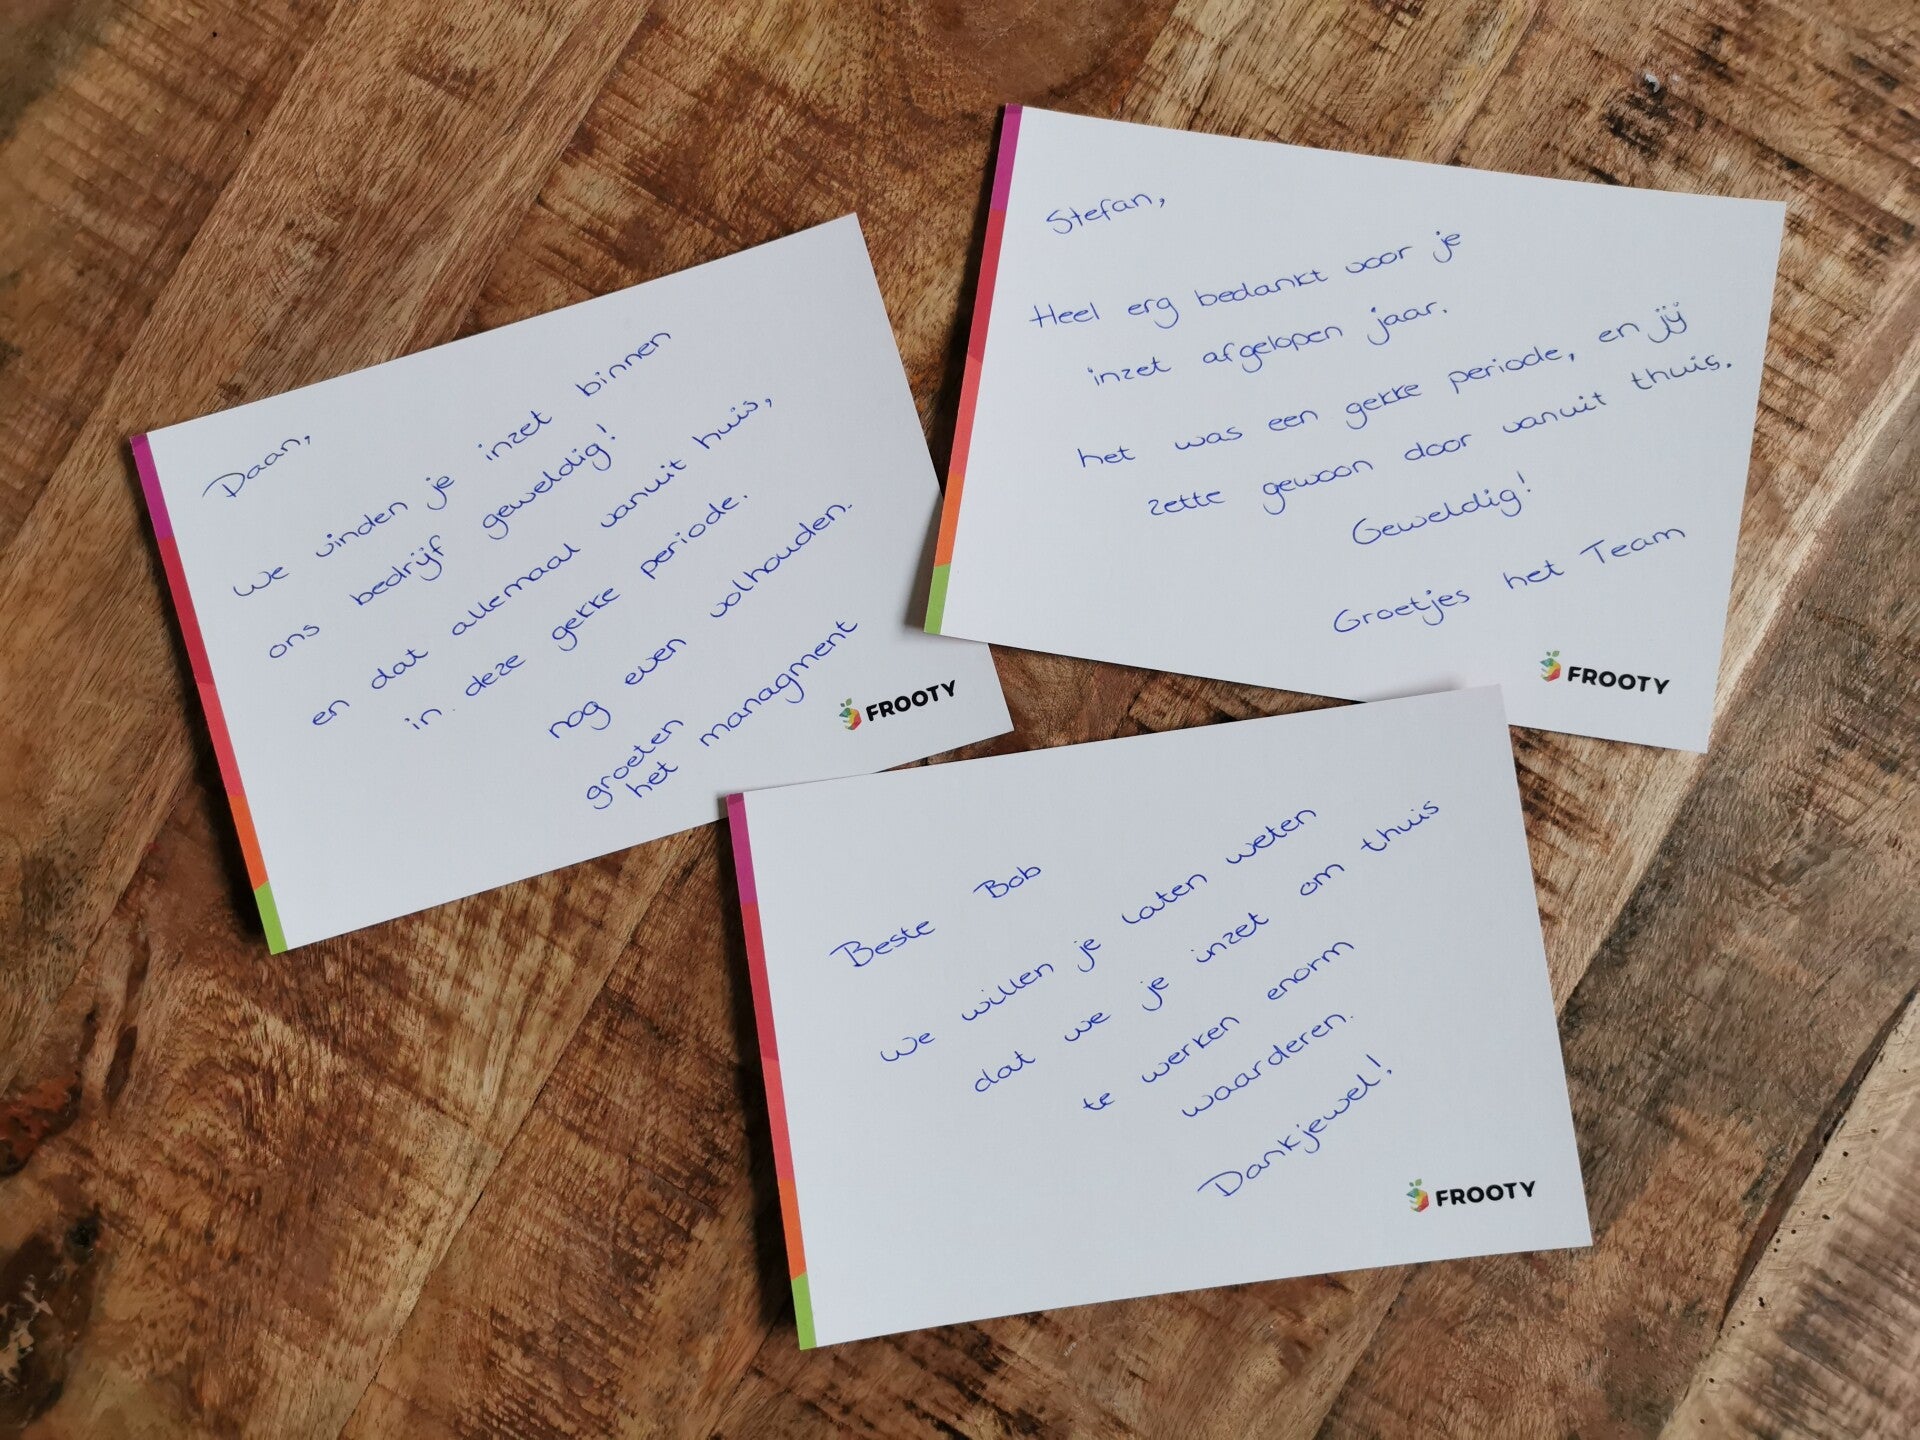 Daan,
we vinden je inzet binnen
ons bedrijf geweldig!
en dat allemaal vanuit huis,
in deze gekke periode.
nog even volhouden.
groeten
het managment
FROOTY
Stefan,
Heel erg bedankt voor je
inzet afgelopen jaar.
het was een gekke periode, en jij
zette gewoon door vanuit thuis.
Geweldig!
Groetjes het Team
FROOTY
Beste Bob
we willen je laten weten
dat we je inzet om thuis
te werken enorm
waarderen.
Dankjewel!
FROOTY